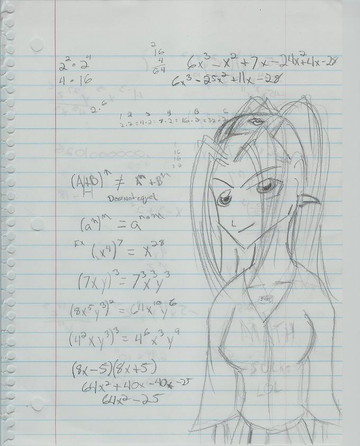 2² = 2⁴
4 = 16
2
16
4
64
6x³ - x² + 7x - 24x² + 4x - 28
6x³ - 25x² + 11x - 28
(A+B)ⁿ ≠ Aⁿ + Bⁿ
Does not equal
(aⁿ)ᵐ = aⁿ·ᵐ
Ex (x⁴)⁷ = x²⁸
(7xy)³ = 7³x³y³
(8x⁵y³)² = 64x¹⁰y⁶
(4²xy³)³ = 4⁶x³y⁹
(8x-5)(8x+5)
64x² + 40x - 40x - 25
64x² - 25
MATH
LOL